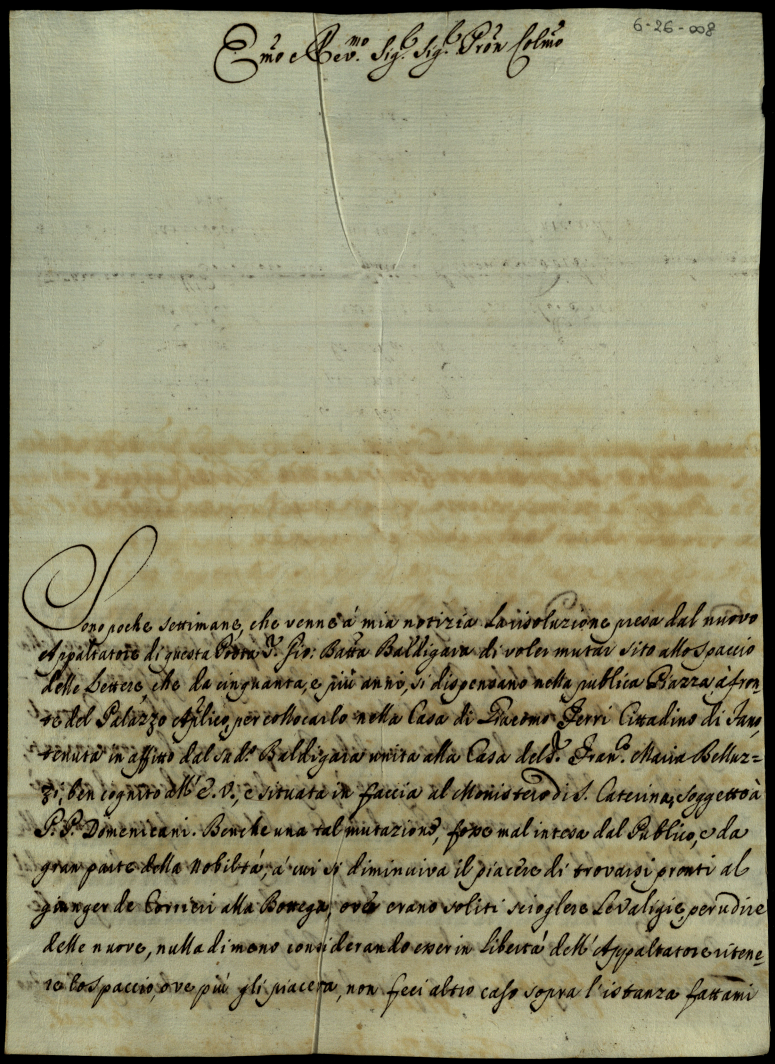 6-26-008
Emo e Rev.mo Sig.r Sig.r Pron Colmo
Sono poche settimane, che venne á mia notizia La risoluzione presa dal nuovo
Appaltatore di questa Posta S.r Gio: Batta Baldigara di voler mutar sito allo spaccio
delle Lettere, che da cinquanta, e più anni, si dispensano nella publica Piazza, à fron-
te del Palazzo Aplico, per collocarlo nella Casa di Giacomo Ferri Cittadino di Fano,
tenuta in affitto dal sud.o Baldigara unita alla Casa del S.r Fran.o Maria Belluz=
zi, ben cognito all' E. V., e situata in faccia al Monistero di S. Caterina, soggetto à
P.P. Domenicani. Benche una tal mutazione, fosse mal intesa dal Publico, e da
gran parte della nobiltá, á cui si diminuiva il piacere di trovarsi pronti al
giunger de Corrieri alla Bottega, ove erano soliti sciogliere Le Valigie, per udire
delle nuove, nulla di meno considerando esser in Libertá dell' Appaltatore ritene=
re Lo spaccio, ove piú gli piaceva, non feci altro caso sopra l' istanza fattami